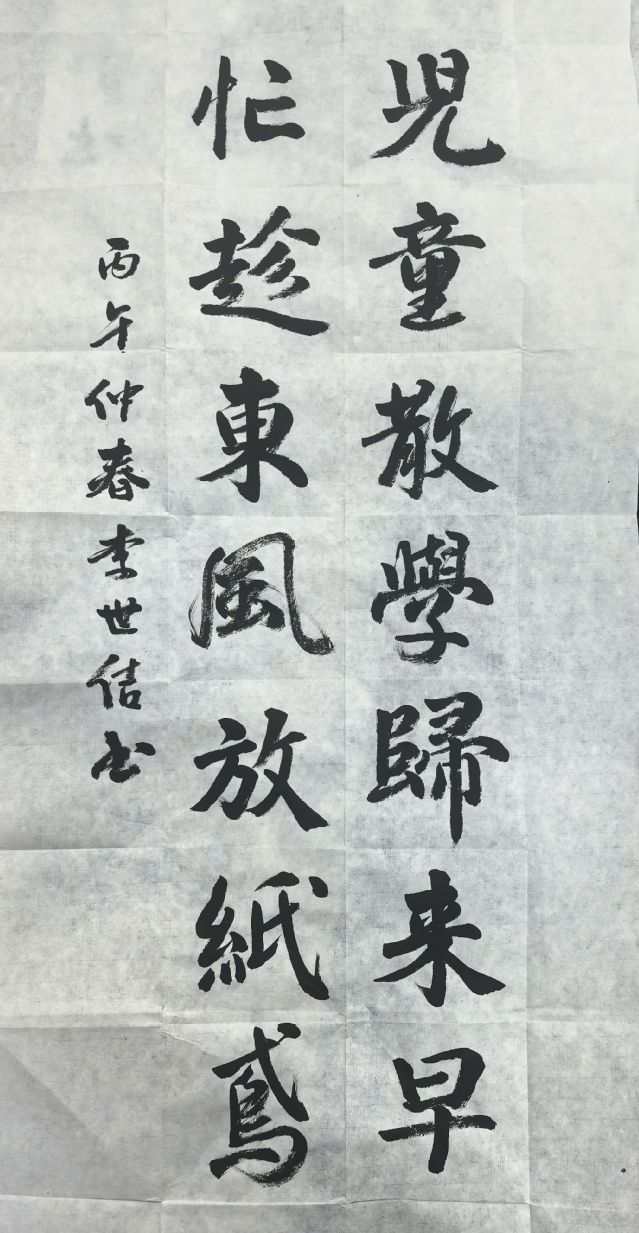 兒童散學歸来早
忙趁東風放紙鳶
丙午仲春李世佶书